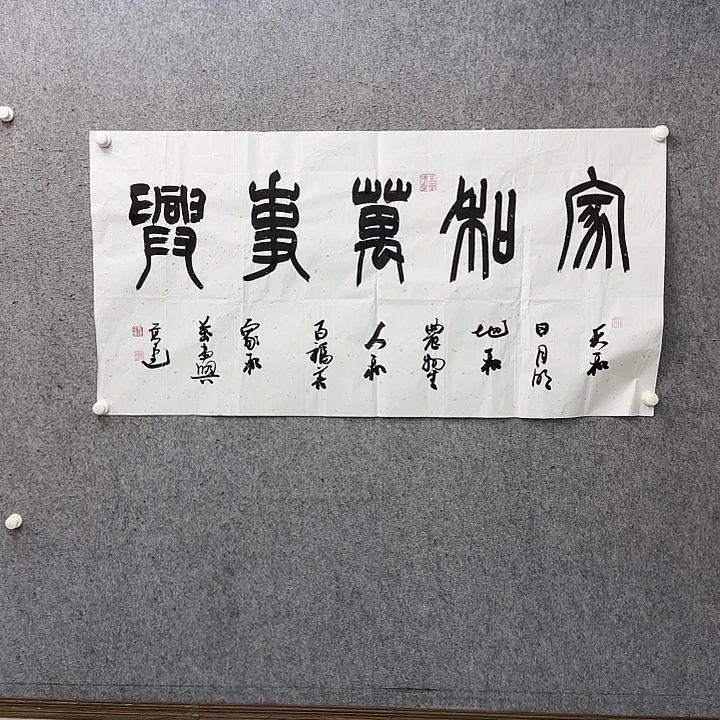 家和萬事興
天和
日月明
地和
人和
百福
家和
萬事興